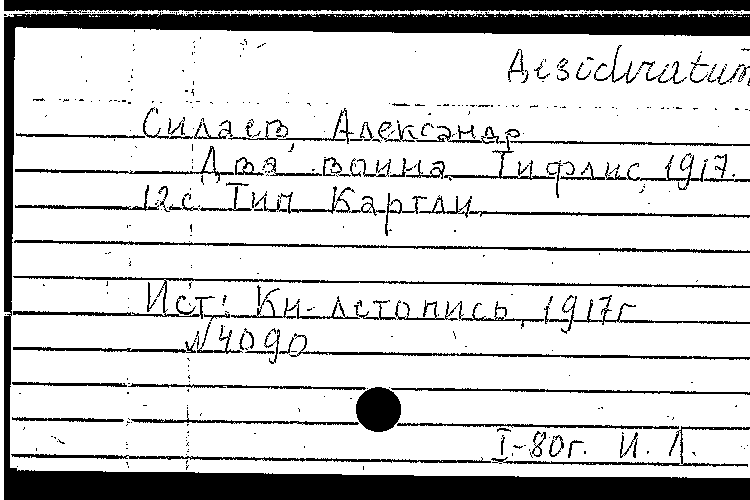 Dezideratum
Силаев, Александр
Два воина. Тифлис, 1917.
12с. Тип Картли.
Ист: Кн-летопись, 1917г
№4090
I-80г. И. Л.